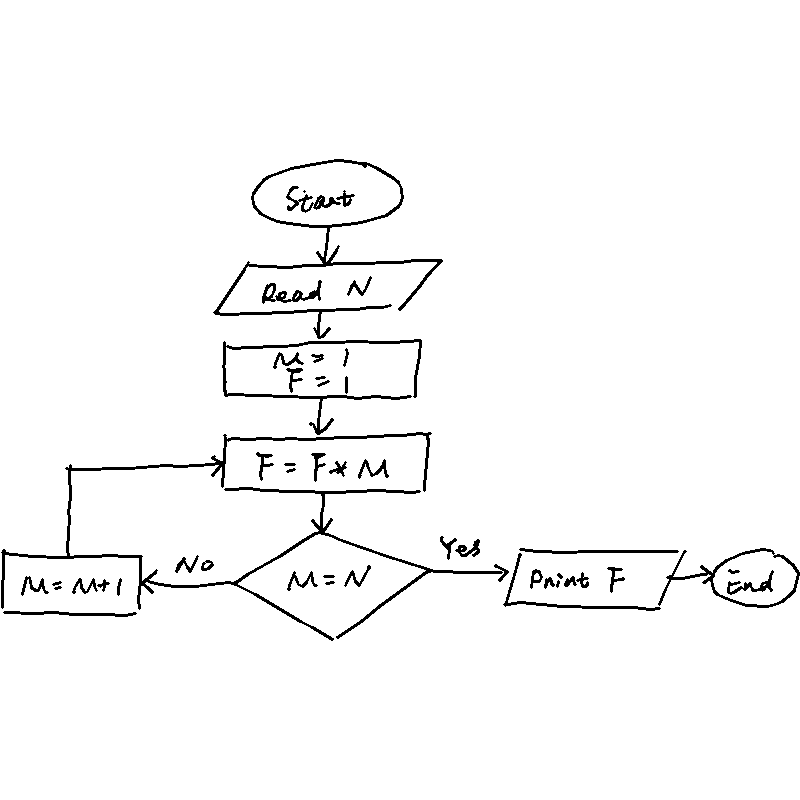 Start
Read N
M = 1
F = 1
F = F * M
M = N
No
Yes
M = M+1
Print F
End